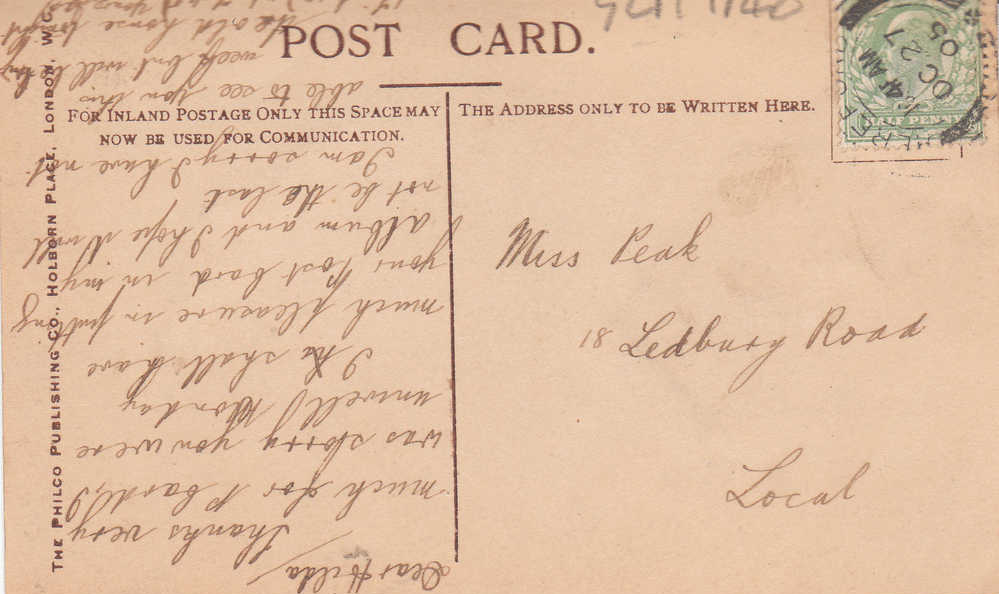 POST CARD.
FOR INLAND POSTAGE ONLY THIS SPACE MAY
NOW BE USED FOR COMMUNICATION.
THE ADDRESS ONLY TO BE WRITTEN HERE.
THE PHILCO PUBLISHING CO., HOLBORN PLACE, LONDON, W.C.
HALF PENNY
AM
OC 27
05
Miss Peak
18 Ledbury Road
Local
Dear Hilda
Thanks very
much for P card, I
was sorry you were
unwell Monday
I shall have
much pleasure in putting
your Post Card in my
album and I hope it will
not be the last
I am sorry I have not
able to see you this
week but will try
the old home